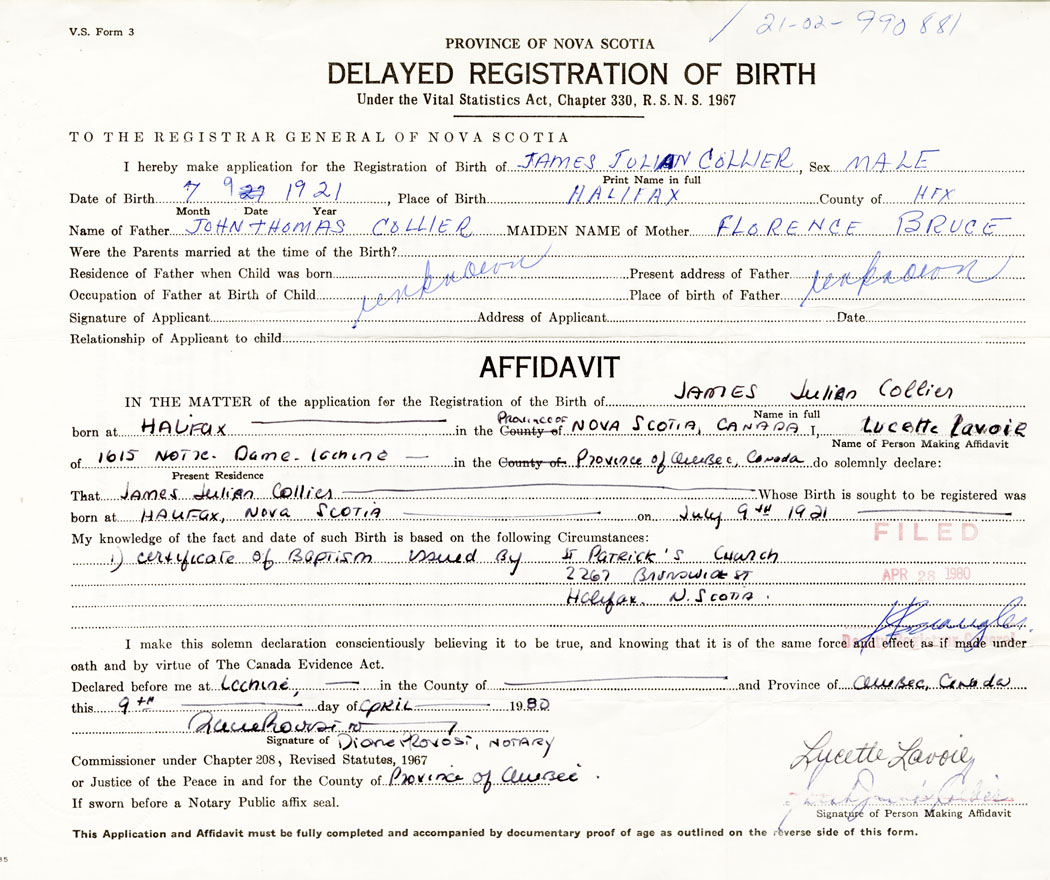 V.S. Form 3
21-02-990881
PROVINCE OF NOVA SCOTIA
DELAYED REGISTRATION OF BIRTH
Under the Vital Statistics Act, Chapter 330, R.S.N.S. 1967
TO THE REGISTRAR GENERAL OF NOVA SCOTIA
I hereby make application for the Registration of Birth of JAMES JULIAN COLLIER, Sex MALE
Print Name in full
Date of Birth 7 9 27 1921, Place of Birth HALIFAX County of HFX
Month Date Year
Name of Father JOHN THOMAS COLLIER MAIDEN NAME of Mother FLORENCE BRUCE
Were the Parents married at the time of the Birth?
Residence of Father when Child was born unknown Present address of Father unknown
Occupation of Father at Birth of Child Place of birth of Father
Signature of Applicant Address of Applicant Date
Relationship of Applicant to child
AFFIDAVIT
IN THE MATTER of the application for the Registration of the Birth of JAMES Julian Collier
Name in full
born at HALIFAX in the County of Province of NOVA SCOTIA, CANADA I, Lucette Lavoie
Name of Person Making Affidavit
of 1615 Notre. Dame. Lachine in the County of Province of Quebec, Canada do solemnly declare:
Present Residence
That James Julian Collier Whose Birth is sought to be registered was
born at HALIFAX, NOVA SCOTIA on July 9th 1921
My knowledge of the fact and date of such Birth is based on the following Circumstances:
FILED
1) certificate of Baptism issued By St PATRICK'S Church
2267 BRUNSWICK ST
APR 28 1980
Halifax. N. Scotia.
I make this solemn declaration conscientiously believing it to be true, and knowing that it is of the same force and effect as if made under
oath and by virtue of The Canada Evidence Act.
Declared before me at Lachine, in the County of and Province of Quebec, Canada
this 9th day of APRIL 1980
Signature of Diane Provost, NOTARY
Commissioner under Chapter 208, Revised Statutes, 1967
or Justice of the Peace in and for the County of Province of Quebec.
Lucette Lavoie
If sworn before a Notary Public affix seal.
Signature of Person Making Affidavit
This Application and Affidavit must be fully completed and accompanied by documentary proof of age as outlined on the reverse side of this form.